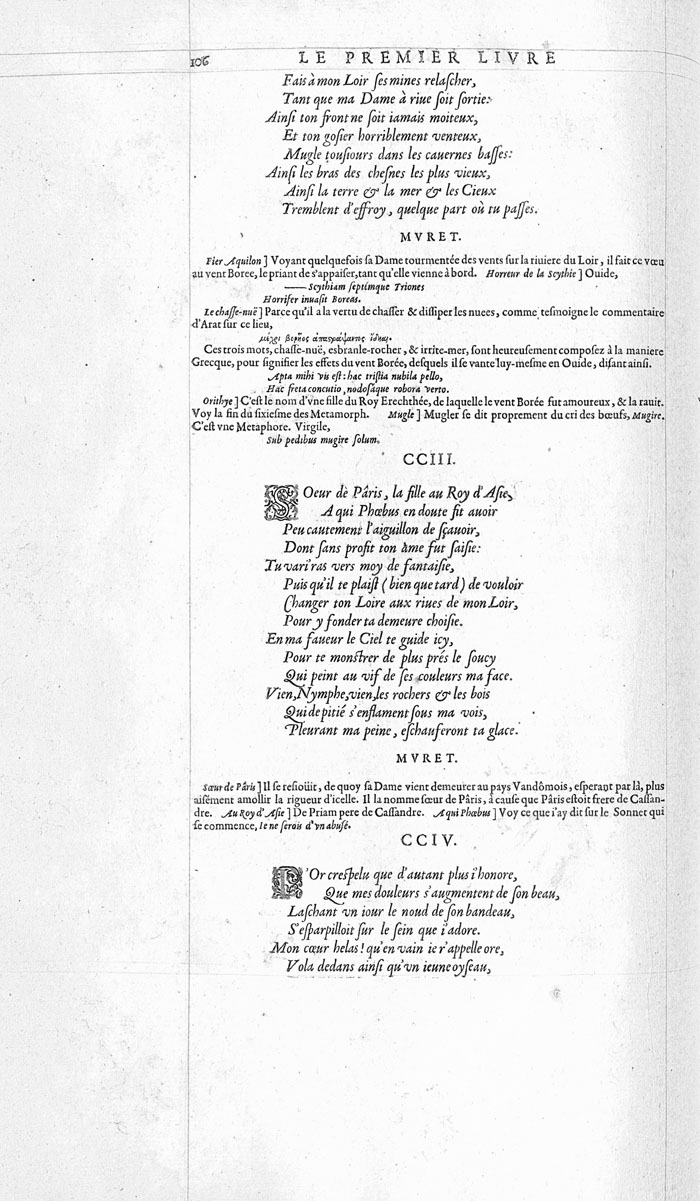 106 LE PREMIER LIVRE
Fais à mon Loir ſes mines relaſcher,
Tant que ma Dame à riue ſoit ſortie:
Ainſi ton front ne ſoit iamais moiteux,
Et ton goſier horriblement venteux,
Mugle touſiours dans les cauernes baſſes:
Ainſi les bras des cheſnes les plus vieux,
Ainſi la terre & la mer & les Cieux
Tremblent d'effroy, quelque part où tu paſſes.
MVRET.
Fier Aquilon ] Voyant quelquefois ſa Dame tourmentée des vents ſur la riuiere du Loir, il fait ce vœu
au vent Boree, le priant de s'appaiſer, tant qu'elle vienne à bord. Horreur de la Scythie ] Ouide,
—— Scythiam ſeptémque Triones
Horrifer inuaſit Boreas.
Le chaſſe-nuë ] Parce qu'il a la vertu de chaſſer & diſſiper les nuees, comme teſmoigne le commentaire
d'Arat ſur ce lieu,
Ces trois mots, chaſſe-nuë, esbranle-rocher, & irrite-mer, ſont heureuſement compoſez à la maniere
Grecque, pour ſignifier les effets du vent Borée, deſquels il ſe vante luy-meſme en Ouide, diſant ainſi.
Apta mihi vis eſt: hac triſtia nubila pello,
Hac freta concutio, nodoſáque robora verto.
Orithye ] C'eſt le nom d'vne fille du Roy Erechthée, de laquelle le vent Borée fut amoureux, & la rauit.
Voy la fin du ſixieſme des Metamorph. Mugle ] Mugler ſe dit proprement du cri des bœufs, Mugire.
C'eſt vne Metaphore. Virgile,
Sub pedibus mugire ſolum.
CCIII.
SOeur de Pâris, la fille au Roy d'Aſie,
A qui Phœbus en doute fit auoir
Peu cautement l'aiguillon de ſçauoir,
Dont ſans profit ton âme fut ſaiſie:
Tu vari'ras vers moy de fantaiſie,
Puis qu'il te plaiſt ( bien que tard ) de vouloir
Changer ton Loire aux riues de mon Loir,
Pour y fonder ta demeure choiſie.
En ma faueur le Ciel te guide icy,
Pour te monſtrer de plus prés le ſoucy
Qui peint au vif de ſes couleurs ma face.
Vien, Nymphe, vien, les rochers & les bois
Qui de pitié s'enflament ſous ma vois,
Pleurant ma peine, eſchauferont ta glace.
MVRET.
Sœur de Pâris ] Il ſe reſioüit, de quoy ſa Dame vient demeurer au pays Vandômois, eſperant par là, plus
aiſément amollir la rigueur d'icelle. Il la nomme ſœur de Pâris, à cauſe que Pâris eſtoit frere de Caſſan-
dre. Au Roy d'Aſie ] De Priam pere de Caſſandre. A qui Phœbus ] Voy ce que i'ay dit ſur le Sonnet qui
ſe commence, Ie ne ſerois d'vn abuſé.
CCIV.
L'Or creſpelu que d'autant plus i'honore,
Que mes douleurs s'augmentent de ſon beau,
Laſchant vn iour le noud de ſon bandeau,
S'eſparpilloit ſur le ſein que i'adore.
Mon cœur helas! qu'en vain ie r'appelle ore,
Vola dedans ainſi qu'vn ieune oyſeau,